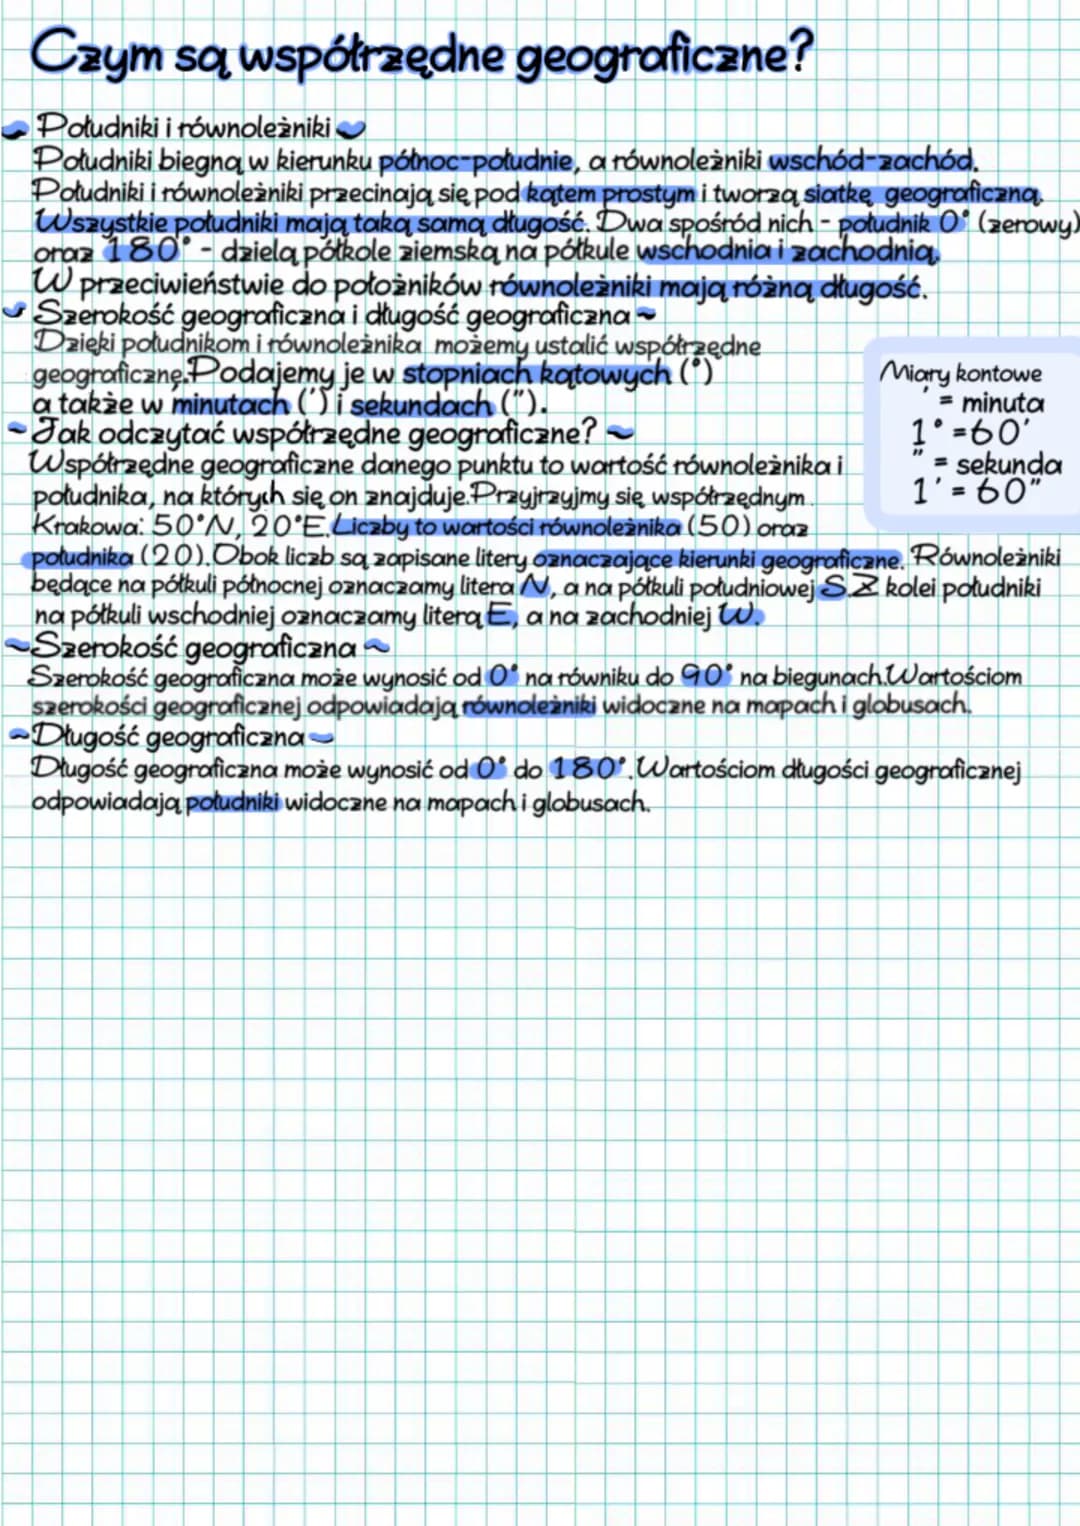 Czym są współrzędne geograficzne?
Południki i równoleżniki
Południki biegną w kierunku północ-południe, a równoleżniki wschód-zachód.
Południki i równoleżniki przecinają się pod kątem prostym i tworzą siatkę geograficzną.
Wszystkie południki mają taką samą długość. Dwa spośród nich - południk 0° (zerowy)
oraz 180° - dzielą półkole ziemską na półkule wschodnia i zachodnią.
W przeciwieństwie do położników równoleżniki mają różną długość.
Szerokość geograficzna i długość geograficzna ~
Dzięki południkom i równoleżnika możemy ustalić współrzędne
geograficznę.Podajemy je w stopniach kątowych (°)
a także w minutach (') i sekundach (").
Miary kontowe
' = minuta
1° =60'
" = sekunda
1' = 60"
~Jak odczytać współrzędne geograficzne? ~
Współrzędne geograficzne danego punktu to wartość równoleżnika i
południka, na których się on znajduje.Przyjrzyjmy się współrzędnym
Krakowa: 50°N, 20°E.Liczby to wartości równoleżnika (50) oraz
południka (20).Obok liczb są zapisane litery oznaczające kierunki geograficzne. Równoleżniki
będące na półkuli północnej oznaczamy litera N, a na półkuli południowej S.Z kolei południki
na półkuli wschodniej oznaczamy literą E, a na zachodniej W.
~Szerokość geograficzna ~
Szerokość geograficzna może wynosić od 0° na równiku do 90° na biegunach.Wartościom
szerokości geograficznej odpowiadają równoleżniki widoczne na mapach i globusach.
~Długość geograficzna ~
Długość geograficzna może wynosić od 0° do 180°.Wartościom długości geograficznej
odpowiadają południki widoczne na mapach i globusach.